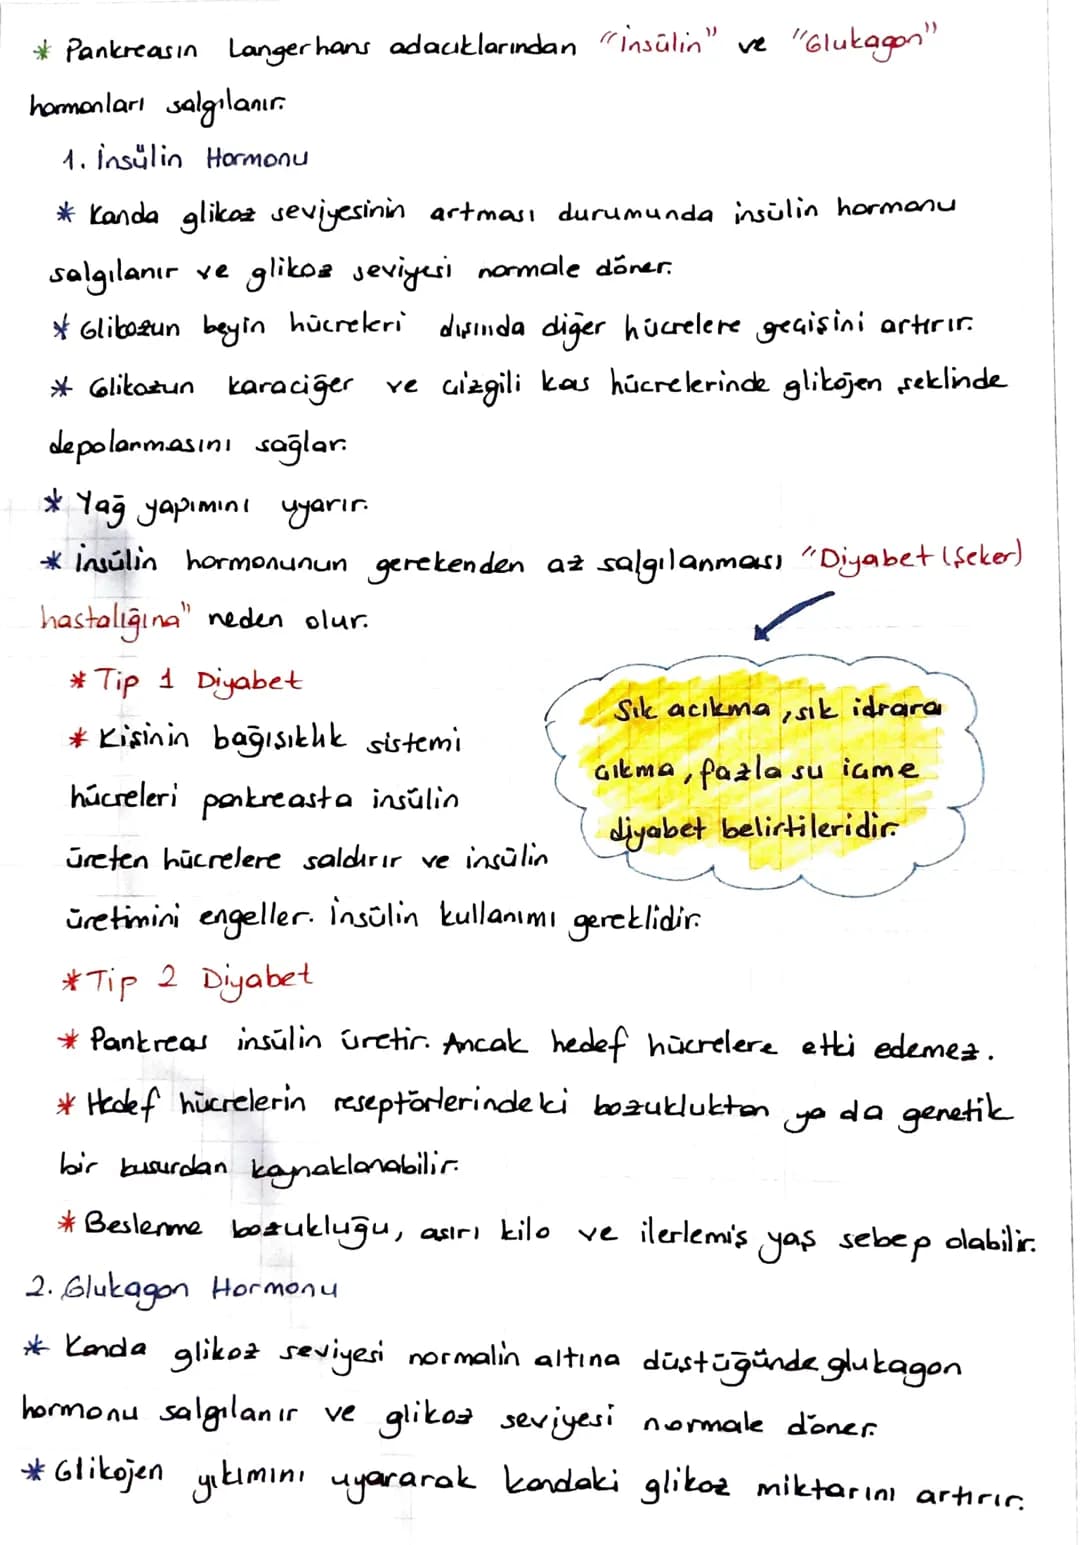 * Pankreasın Langerhans adacıklarından "İnsülin" ve "Glukagon"
hormonları salgılanır.
1. İnsülin Hormonu
* Kanda glikoz seviyesinin artması durumunda insülin hormonu
salgılanır ve glikoz seviyesi normale döner.
* Glikozun beyin hücreleri dışında diğer hücrelere geçişini artırır.
* Glikozun karaciğer ve çizgili kas hücrelerinde glikojen şeklinde
depolanmasını sağlar.
* Yağ yapımını uyarır.
* İnsülin hormonunun gerekenden az salgılanması "Diyabet (Şeker)
hastalığına" neden olur.
* Tip 1 Diyabet
* Kişinin bağışıklık sistemi
hücreleri pankreasta insülin
üreten hücrelere saldırır ve insülin
üretimini engeller. İnsülin kullanımı gereklidir.
Sık acıkma, sık idrara
çıkma, fazla su içme
diyabet belirtileridir.
* Tip 2 Diyabet
* Pankreas insülin üretir. Ancak hedef hücrelere etki edemez.
* Hedef hücrelerin reseptörlerindeki bozukluktan ya da genetik
bir kusurdan kaynaklanabilir.
* Beslenme bozukluğu, aşırı kilo ve ilerlemiş yaş sebep olabilir.
2. Glukagon Hormonu
* Kanda glikoz seviyesi normalin altına düştüğünde glukagon
hormonu salgılanır ve glikoz seviyesi normale döner.
* Glikojen yıkımını uyararak kandaki glikoz miktarını artırır.